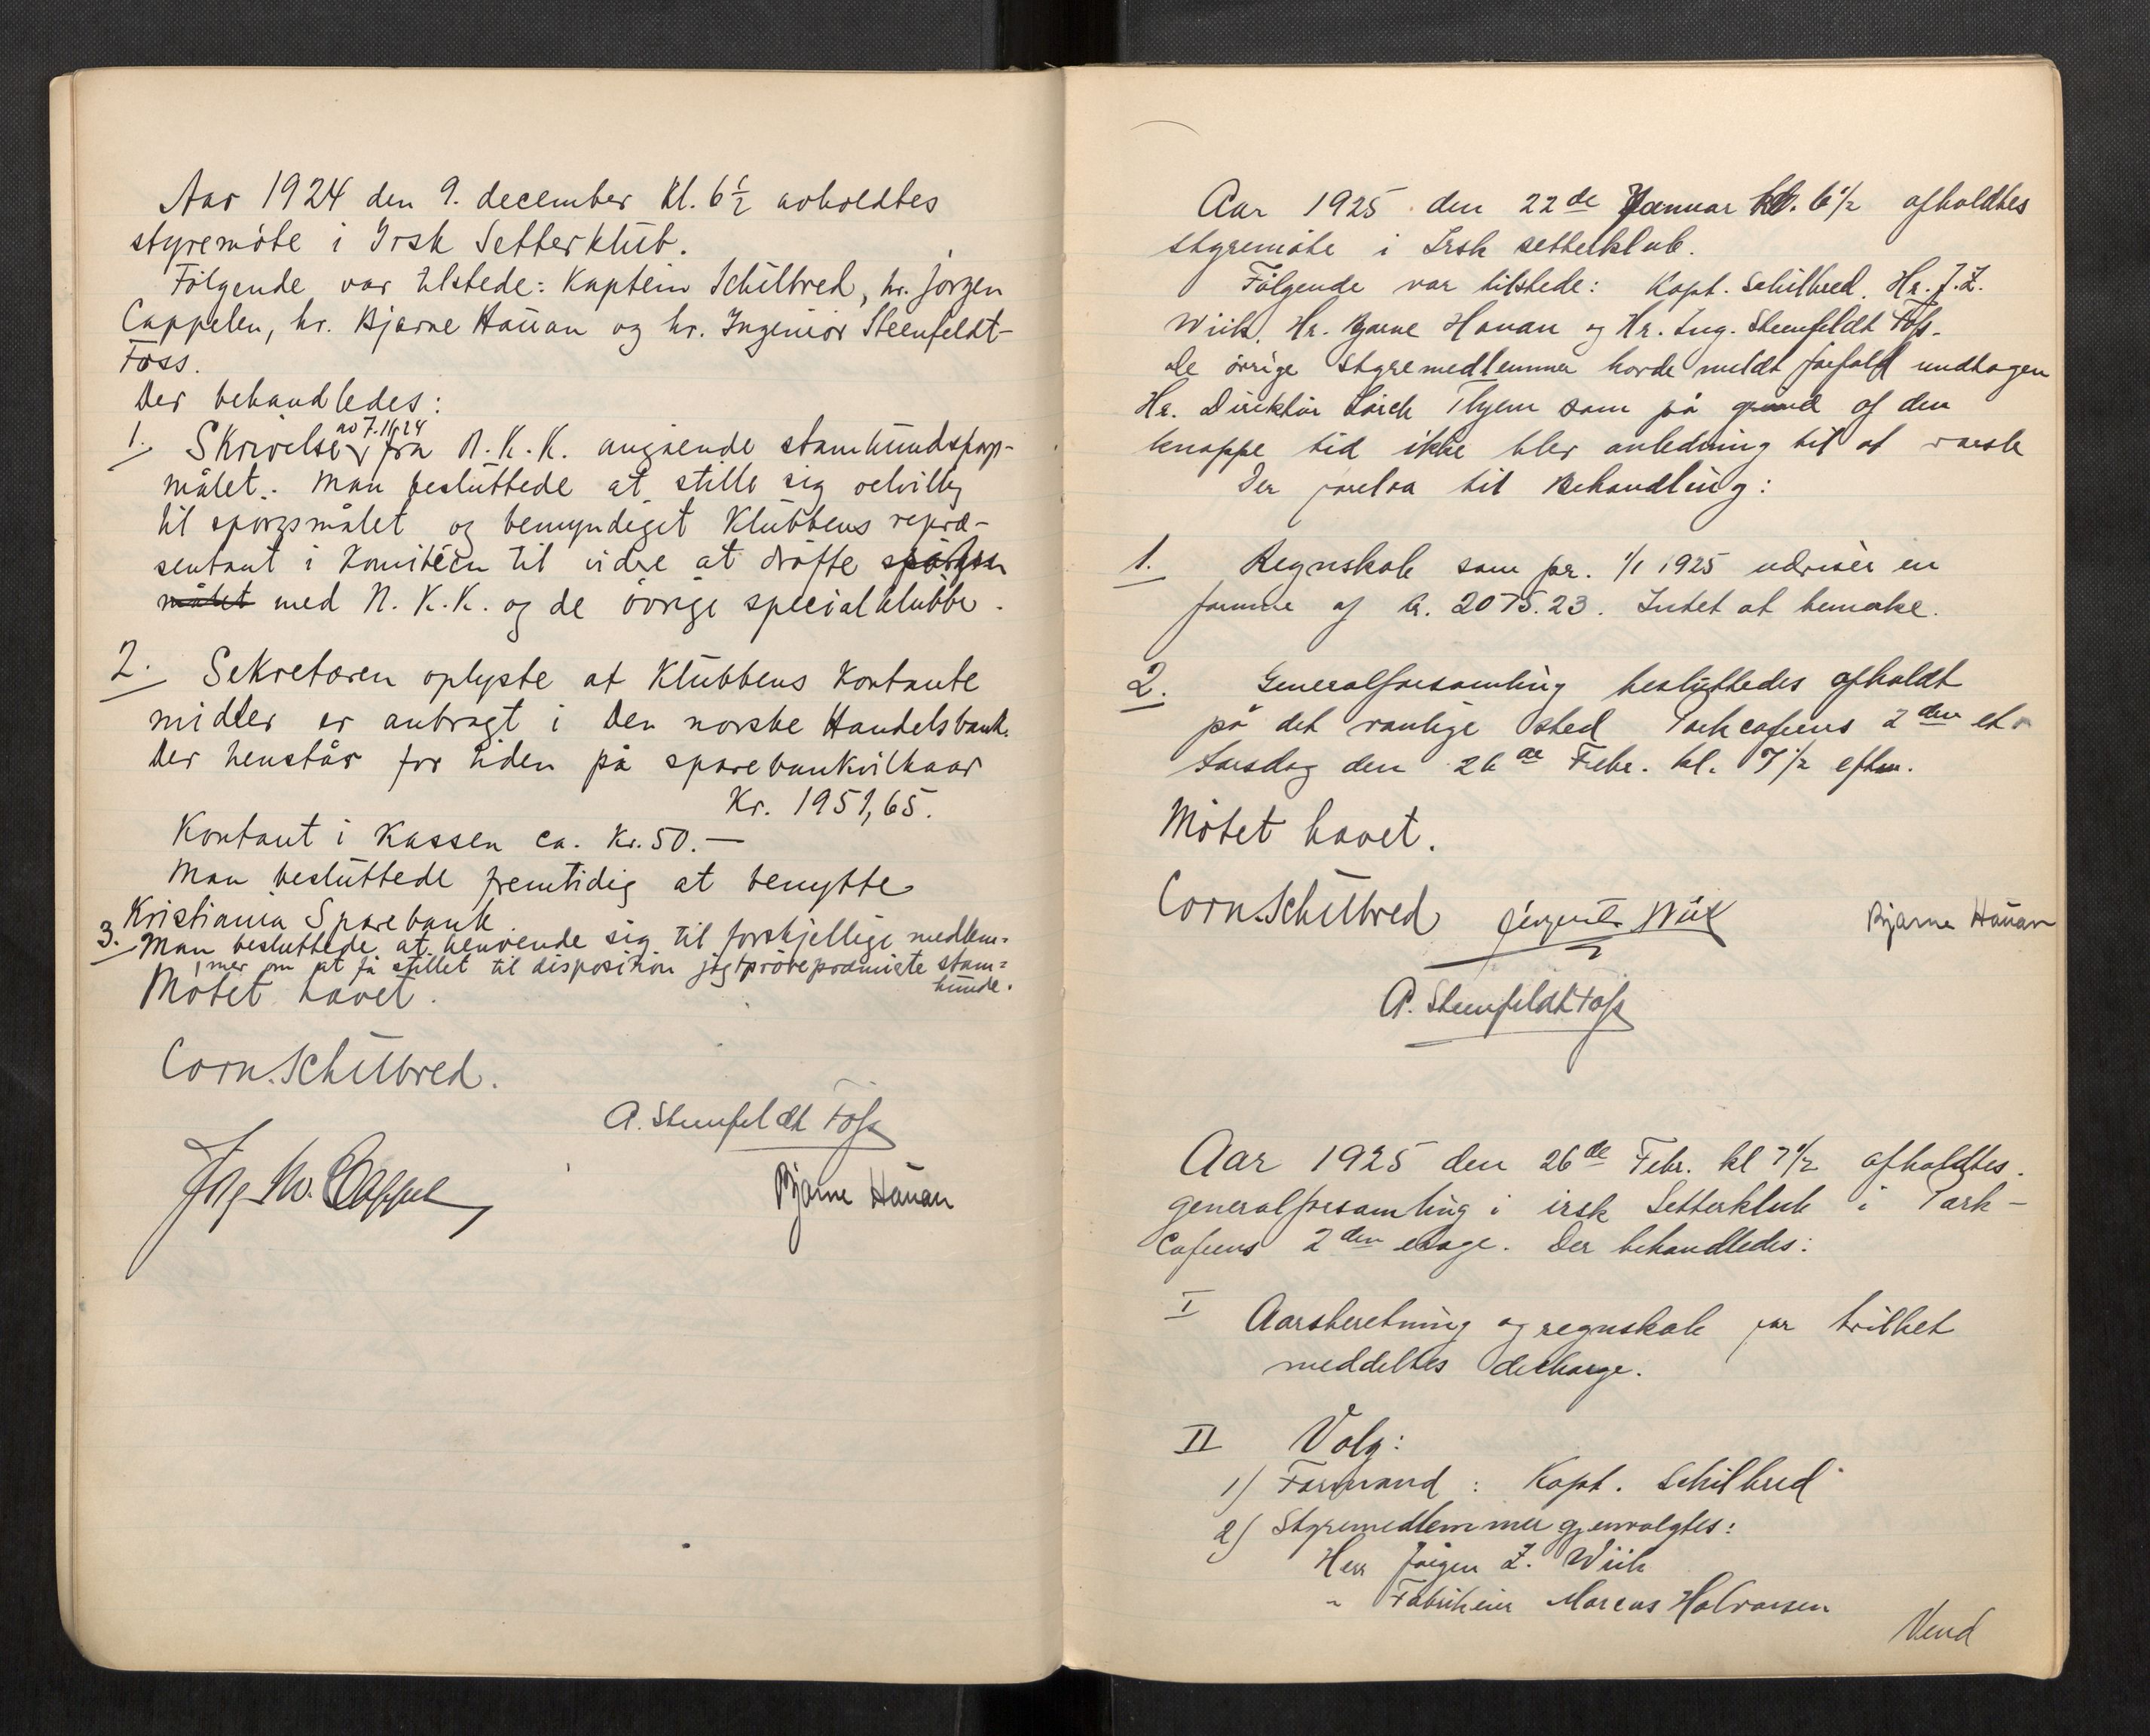 Aar 1924 den 9. december Kl. 6 1/2 avholdtes
styremöte i Irsk Setterklub.
Fölgende var tilstede: Kaptein Schilbred, hr. Jörgen
Cappelen, hr. Bjarne Hauan og hr. Ingeniör Steenfeldt-
Foss.
Der behandledes:
1. Skrivelse av 7.11.24 fra N. K. K. angående stamhundspörs-
målet. Man besluttede at stille sig velvillig
til spörgsmålet og bemyndiget Klubbens repræ-
sentant i Komitéen til vidre at dröfte spörgs
målet med N. K. K. og de övrige specialklubber.
2. Sekretæren oplyste at Klubbens Kontante
midler er anbragt i Den norske Handelsbank.
Der henstår for tiden på sparebankvilkaar
Kr. 1951,65.
Kontant i Kassen ca. Kr. 50.—
Man besluttede fremtidig at benytte
Kristiania Sparebank
3. Man besluttede at henvende sig til forskjellige medlem=
mer om at få stillet til disposition jagtprövepræmierte stam=
hunde.
Mötet hævet.
Corn. Schilbred.
A. Steenfeldt Foss
Jörg. W. Cappelen
Bjarne Hauan
Aar 1925 den 22de Januar kl. 6 1/2 afholdtes
styremöte i Irsk setterklub.
Fölgende var tilstede: Kapt. Schilbred, Hr. J. Z.
Wiik, Hr. Bjarne Hauan og Hr. Ing. Steenfeldt Foss.
De övrige styremedlemmer havde meldt forfald undtagen
Hr. Direktör Thyem som på grund af den
knappe tid ikke blev anledning til at varsle
Der forelaa til Behandling:
1. Regnskab som pr. 1/1 1925 udviser en
summe af kr. 2075.23. Intet at bemerke.
2. Generalforsamling besluttedes afholdt
på det vanlige sted Parkcafeens 2den et.
Torsdag den 26de Febr. kl. 7 1/2 eftm.
Mötet hævet.
Corn. Schilbred Jörgen Z. Wiik Bjarne Hauan
A. Steenfeldt Foss
Aar 1925 den 26de Febr. kl 7 1/2 afholdtes
generalforsamling i irsk Setterklub i Park-
Cafeens 2den etage. Der behandledes:
I Aarsberetning og regnskab for hvilket
meddeltes decharge.
II Valg:
1) Formand: Kapt. Schilbred
2) Styremedlemmer gjenvalgtes:
Herr Jörgen Z. Wiik
" Fabrikeier Marcus Halvorsen
Vend